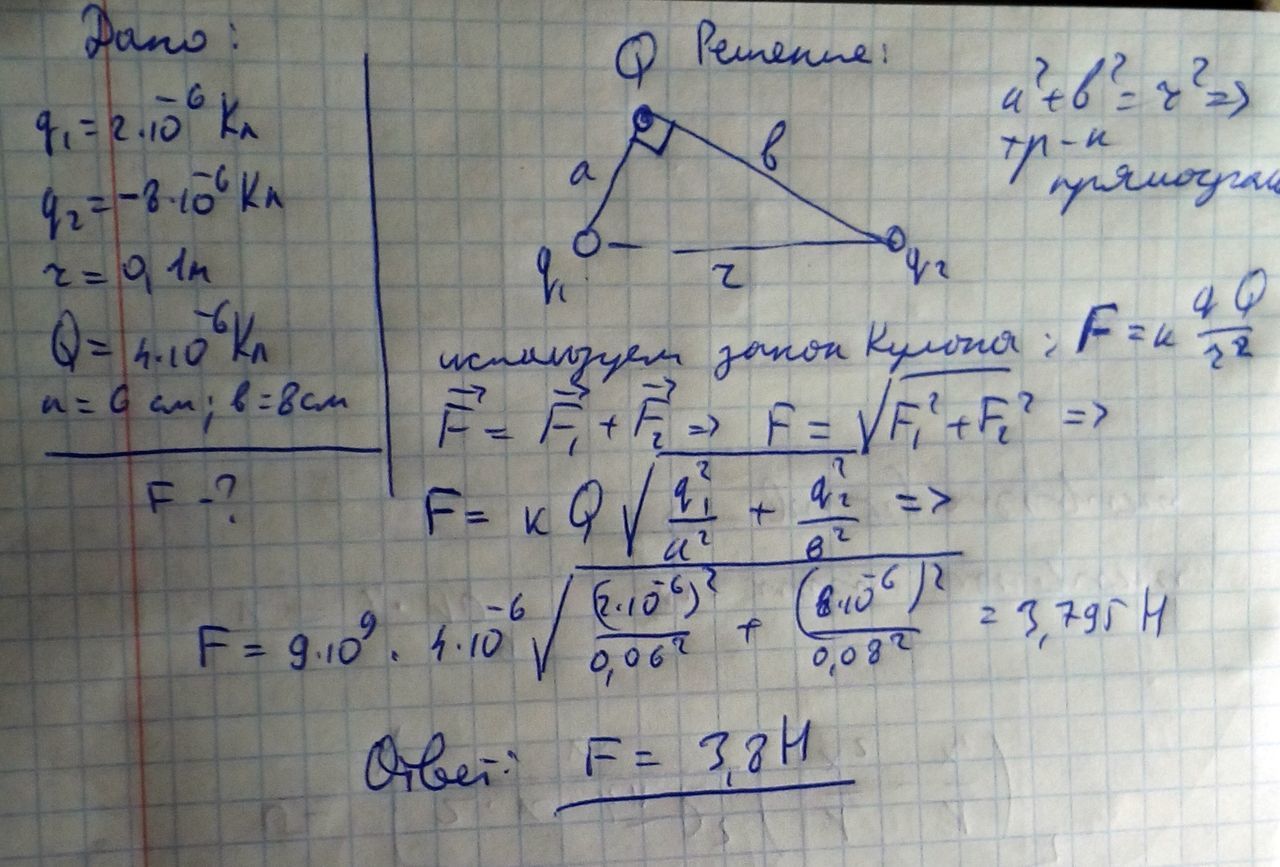 Дано:
q₁ = 2·10⁻⁶ Кл
q₂ = -8·10⁻⁶ Кл
r = 0,1м
Q = 4·10⁻⁶ Кл
a = 6 см; в = 8см
F - ?
Решение:
Q
a
в
q₁
r
q₂
a² + в² = r² =>
тр-к
прямоугол
используем закон Кулона: F = к qQ/r²
F⃗ = F⃗₁ + F⃗₂ => F = √(F₁² + F₂²) =>
F = кQ √(q₁²/a² + q₂²/в²) =>
F = 9·10⁹ · 4·10⁻⁶ √((2·10⁻⁶)²/0,06² + (8·10⁻⁶)²/0,08²) = 3,795 Н
Ответ: F = 3,8Н